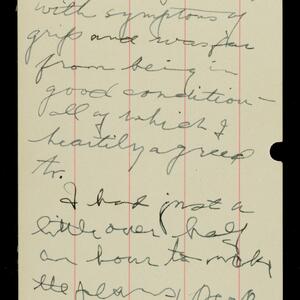 with symptoms of
grip and was far
from being in
good condition -
all of which I
heartily agreed
to.
I had just a
little over half
an hour to make
the